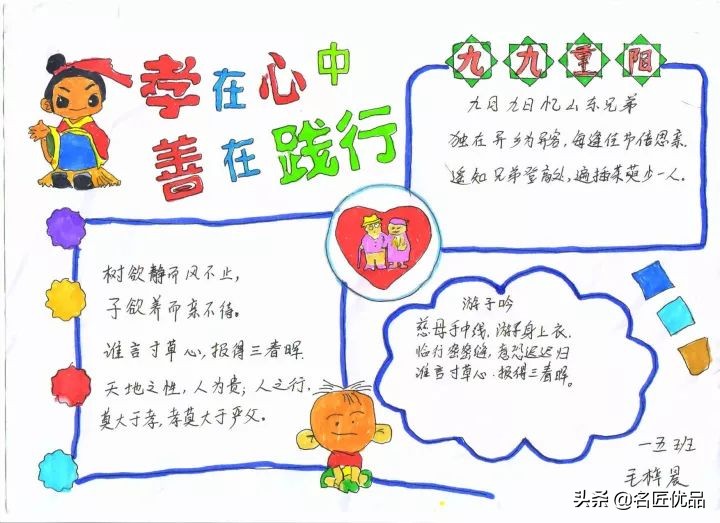 孝在心中
善在践行
九九重阳
九月九日忆山东兄弟
独在异乡为异客,每逢佳节倍思亲.
遥知兄弟登高处,遍插茱萸少一人。
树欲静而风不止,
子欲养而亲不待。
谁言寸草心,报得三春晖.
天地之性,人为贵;人之行,
莫大于孝,孝莫大于严父。
游子吟
慈母手中线,游子身上衣.
临行密密缝,意恐迟迟归
谁言寸草心.报得三春晖。
一五班
毛梓晨
头条@名匠优品